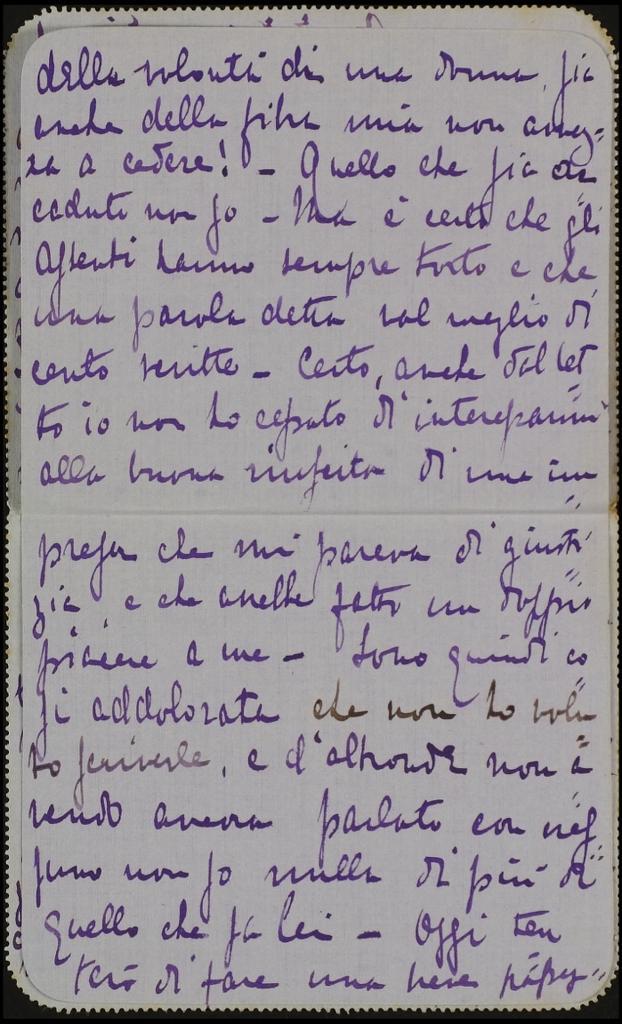 della volontà di una donna, sia
anche della fibra mia non avvez=
za a cedere! - Quello che sia ac
caduto non so - Ma è certo che gli
assenti hanno sempre torto e che
una parola detta val meglio di
cento scritte - Certo, anche dal let=
to io non ho cessato d'interessarmi
alla buona riuscita di una im=
presa che mi pareva di giusti=
zia, e che avrebbe fatto un doppio
piacere a me - Sono quindi co=
sì addolorata che non ho volu=
to scriverle, e d'altronde non a=
vendo ancora parlato con nes=
suno non so nulla di più di
quello che sa Lei - Oggi ten
terò di fare una breve passeg=